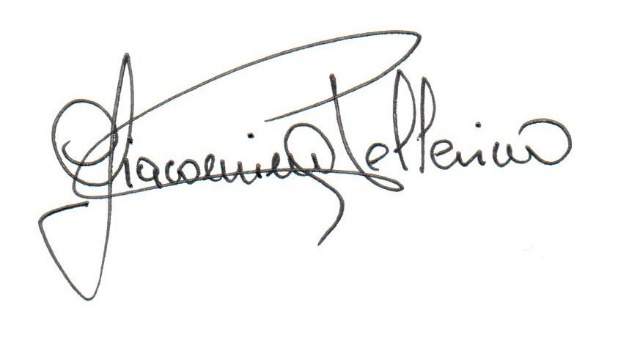 Giacomino Pellerino